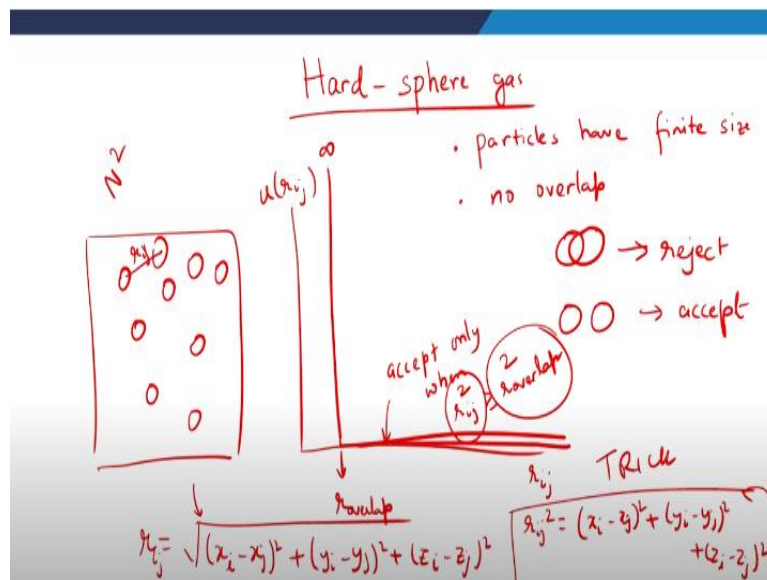 Hard-sphere gas
N²
∞
u(rᵢⱼ)
• particles have finite size
• no overlap
→ reject
→ accept
rᵢⱼ
accept only
when rᵢⱼ² > r²overlap
rᵢⱼ
roverlap
rᵢⱼ = √(xᵢ-xⱼ)² + (yᵢ-yⱼ)² + (zᵢ-zⱼ)²
TRICK
rᵢⱼ² = (xᵢ-xⱼ)² + (yᵢ-yⱼ)²
+(zᵢ-zⱼ)²